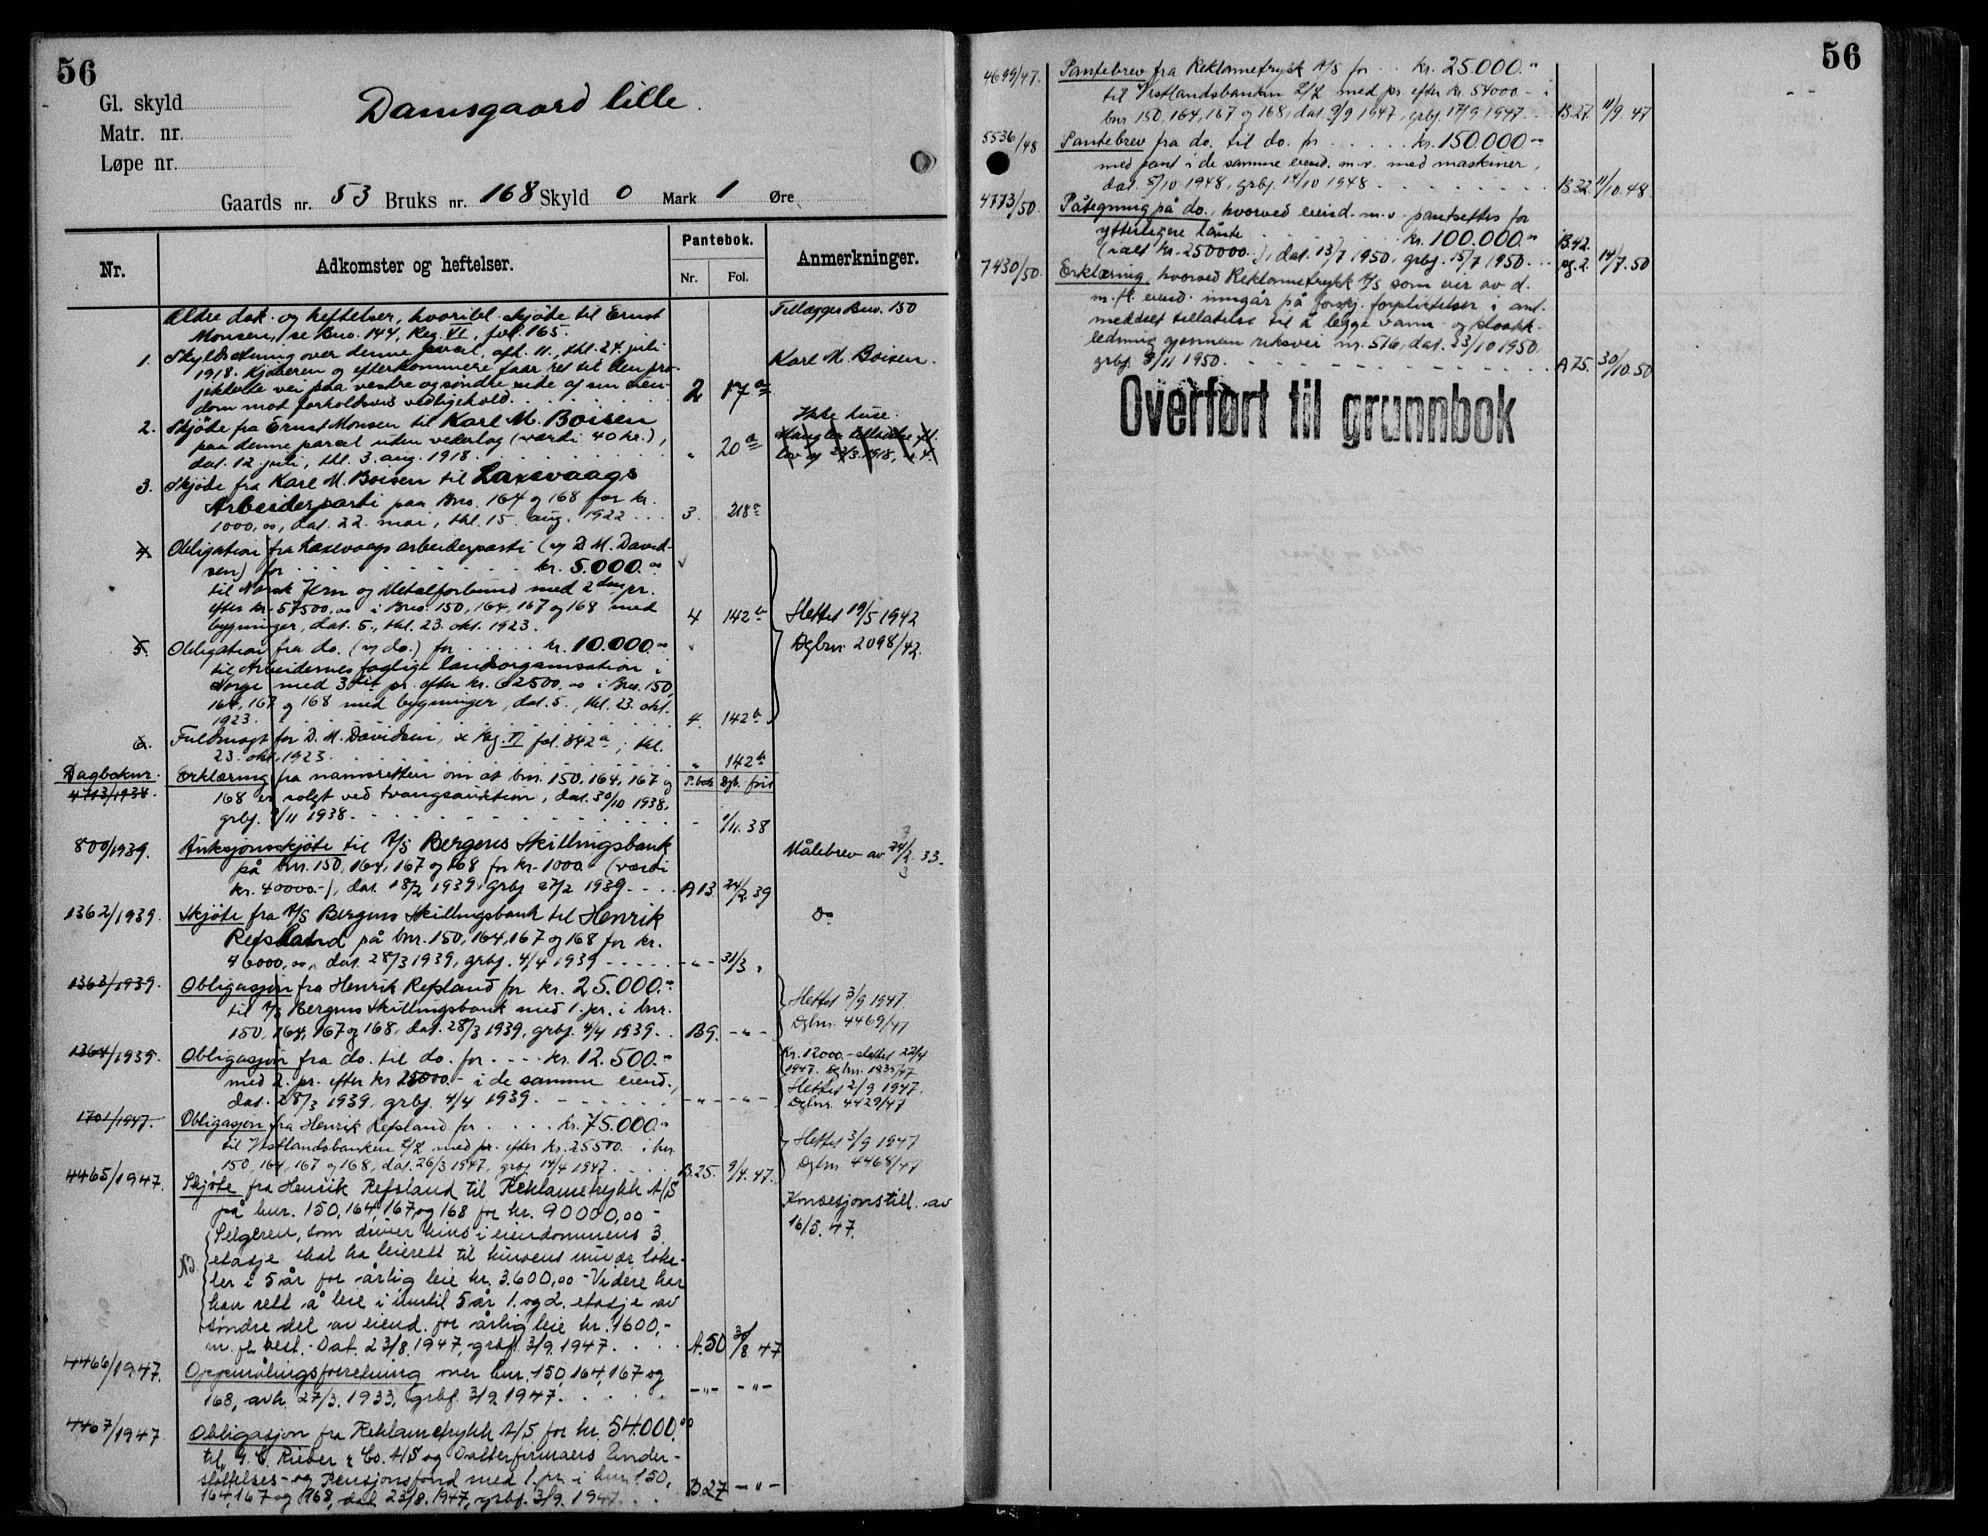 56
Gl. skyld
Matr. nr.
Løpe nr.
Damsgaard lille.
Gaards nr. 53 Bruks nr. 168 Skyld 0 Mark 1 Øre
Nr.
Adkomster og heftelser.
Pantebok.
Nr. Fol.
Anmerkninger.
Ældre dok. og heftelser, hvoribl. skjøte til Ernst
Monsen, se Bno. 144, Reg. VI, fol. 165.
Tillægges Bno. 150
1. Skylddeling over denne parcel, afh. 11., thl. 24. juli
1918. Kjøberen og efterkommere faar ret til den pro-
jekterte vei paa vestre og søndre side af sin eien-
dom mot forholdsvis vedligehold. 2 17a
Karl M. Boisen.
2. Skjøte fra Ernst Monsen til Karl M. Boisen
paa denne parcel uden vederlag (værdi 40 kr.),
dat. 12. juli, thl. 3. aug. 1918. " 20a
Ikke huse.
Mangler tillatelse
lov av 22/3 1918,
3. Skjøte fra Karl M. Boisen til Laxevaags
Arbeiderparti paa Bno. 164 og 168 for kr.
1000,00, dat. 22. mai, thl. 15. aug. 1922 3. 218a
4. Obligation fra Laxevaags arbeiderparti (v D. M. David-
sen) for kr. 5.000.00
til Norsk Jern og Metalforbund med 2den pr.
efter kr. 57500,00 i Bno. 150, 164, 167 og 168 med
bygninger, dat. 5., thl. 23. okt. 1923. 4 142b
Slettet 19/5 1942
Dgbnr. 2098/42.
5. Obligation fra do. (v do.) for kr. 10.000.00
til Arbeidernes faglige landsorganisation i
Norge med 3die pr. efter kr. 62500,00 i Bno. 150,
164, 167 og 168 med bygninger, dat. 5., thl. 23. okt.
1923. 4. 142b
6. Fuldmagt for D. M. Davidsen, se Reg. VI fol. 342a, thl.
23. okt. 1923. " 142b
Dagboknr. P.bok Dgb. ført
4713/1938. Erklæring fra namsretten om at bnr. 150, 164, 167 og
168 er solgt ved tvangsauktion, dat. 30/10 1938,
grbf. 3/11 1938. - 1/11.38
800/1939. Auksjonsskjøte til A/S Bergens Skillingsbank
på bnr. 150, 164, 167 og 168 for kr. 1000.- (værdi
kr. 40000.-), dat. 18/2 1939, grbf 27/2 1939. A13 24/2 39
Målebrev av 27/3 33.
1362/1939. Skjøte fra A/S Bergens Skillingsbank til Henrik
Refsland på bnr. 150, 164, 167 og 168 for kr.
46000,00, dat. 28/3 1939, grbf. 4/4 1939 -"- 31/3 "
Do
1363/1939. Obligasjon fra Henrik Refsland for kr. 25.000.-
til A/S Bergens Skillingsbank med 1. pr. i bnr.
150, 164, 167 og 168, dat. 28/3 1939, grbf. 4/4 1939. B9. -"-
Slettet 3/9 1947.
Dgbnr. 4469/47
1364/1939. Obligasjon fra do. til do. for kr. 12.500.-
med 2. pr. efter kr 25000.- i de samme eiend.,
dat. 28/3 1939. grbf. 4/4 1939. -"- -"-
Kr. 12000.- slettet 22/4
1947. Dgbnr. 1835/47
Slettet 2/9 1947.
Dgbnr. 4429/47
1701/1947. Obligasjon fra Henrik Refsland for kr. 75.000.-
til Vestlandsbanken L/L med pr. efter kr. 25500.- i bnr.
150, 164, 167 og 168, dat. 26/3 1947, grbf. 14/4 1947. B.25. 9/4. 47.
Slettet 3/9 1947
Dgbnr 4468/47
4465/1947. Skjøte fra Henrik Refsland til Reklametrykk A/S
på bnr. 150, 164, 167 og 168 for kr. 90000,00 -
Konsesjonstill. av
16/5. 47.
NB. Selgeren, som driver kino i eiendommens 3.
etasje skal ha leierett til kinoens nuvær. loka-
ler i 5 år for årlig leie kr. 3.600,00 - Videre har
han rett å leie i inntil 5 år 1. og 2. etasje av
søndre del av eiend. for årlig leie kr. 1600,-
m. fl. best. - Dat. 23/8. 1947, grbf. 3/9. 1947. A.50 30/8 47
4466/1947. Oppmålingsforretning over bnr. 150, 164, 167 og
168, avh. 27/3. 1933, grbf. 3/9 1947. -"- -"-
4467/1947. Obligasjon fra Reklametrykk A/S for kr. 54.000.00
til G. C. Rieber & Co. A/S og Datterfirmaers Under-
støttelses- og Pensjonsfond med 1. pr. i bnr. 150,
164, 167 og 168, dat. 23/8. 1947, grbf. 3/9. 1947. B27 -"-
56
4699/47. Pantebrev fra Reklametrykk A/S for kr. 25.000.-
til Vestlandsbanken L/L med pr. efter kr. 54000.- i
bnr 150, 164, 167 og 168, dat. 9/9 1947, grbf. 17/9 1947. B.27. 11/9. 47
5536/48 Pantebrev fra do. til do. for kr. 150.000.-
med pant i de samme eiend. m.v. med maskiner,
dat. 5/10 1948, grbf. 14/10 1948. B32 11/10. 48.
4773/50. Påtegning på do., hvorved eiend. m.v. pantsettes for
ytterligere lånte kr. 100.000.-
(ialt kr. 250000.-), dat. 13/7 1950, grbf. 15/7 1950. B.42. pg. 2. 14/7. 50
7430/50. Erklæring hvorved Reklametrykk A/S som eier av d.
m. fl. eiend. inngår på forskj. forpliktelser i anl.
meddelt tillatelse til å legge vann- og kloakk-
ledning gjennem riksvei nr. 516, dat. 23/10 1950,
grbf. 3/11 1950. A75. 30/10. 50
Overført til grunnbok